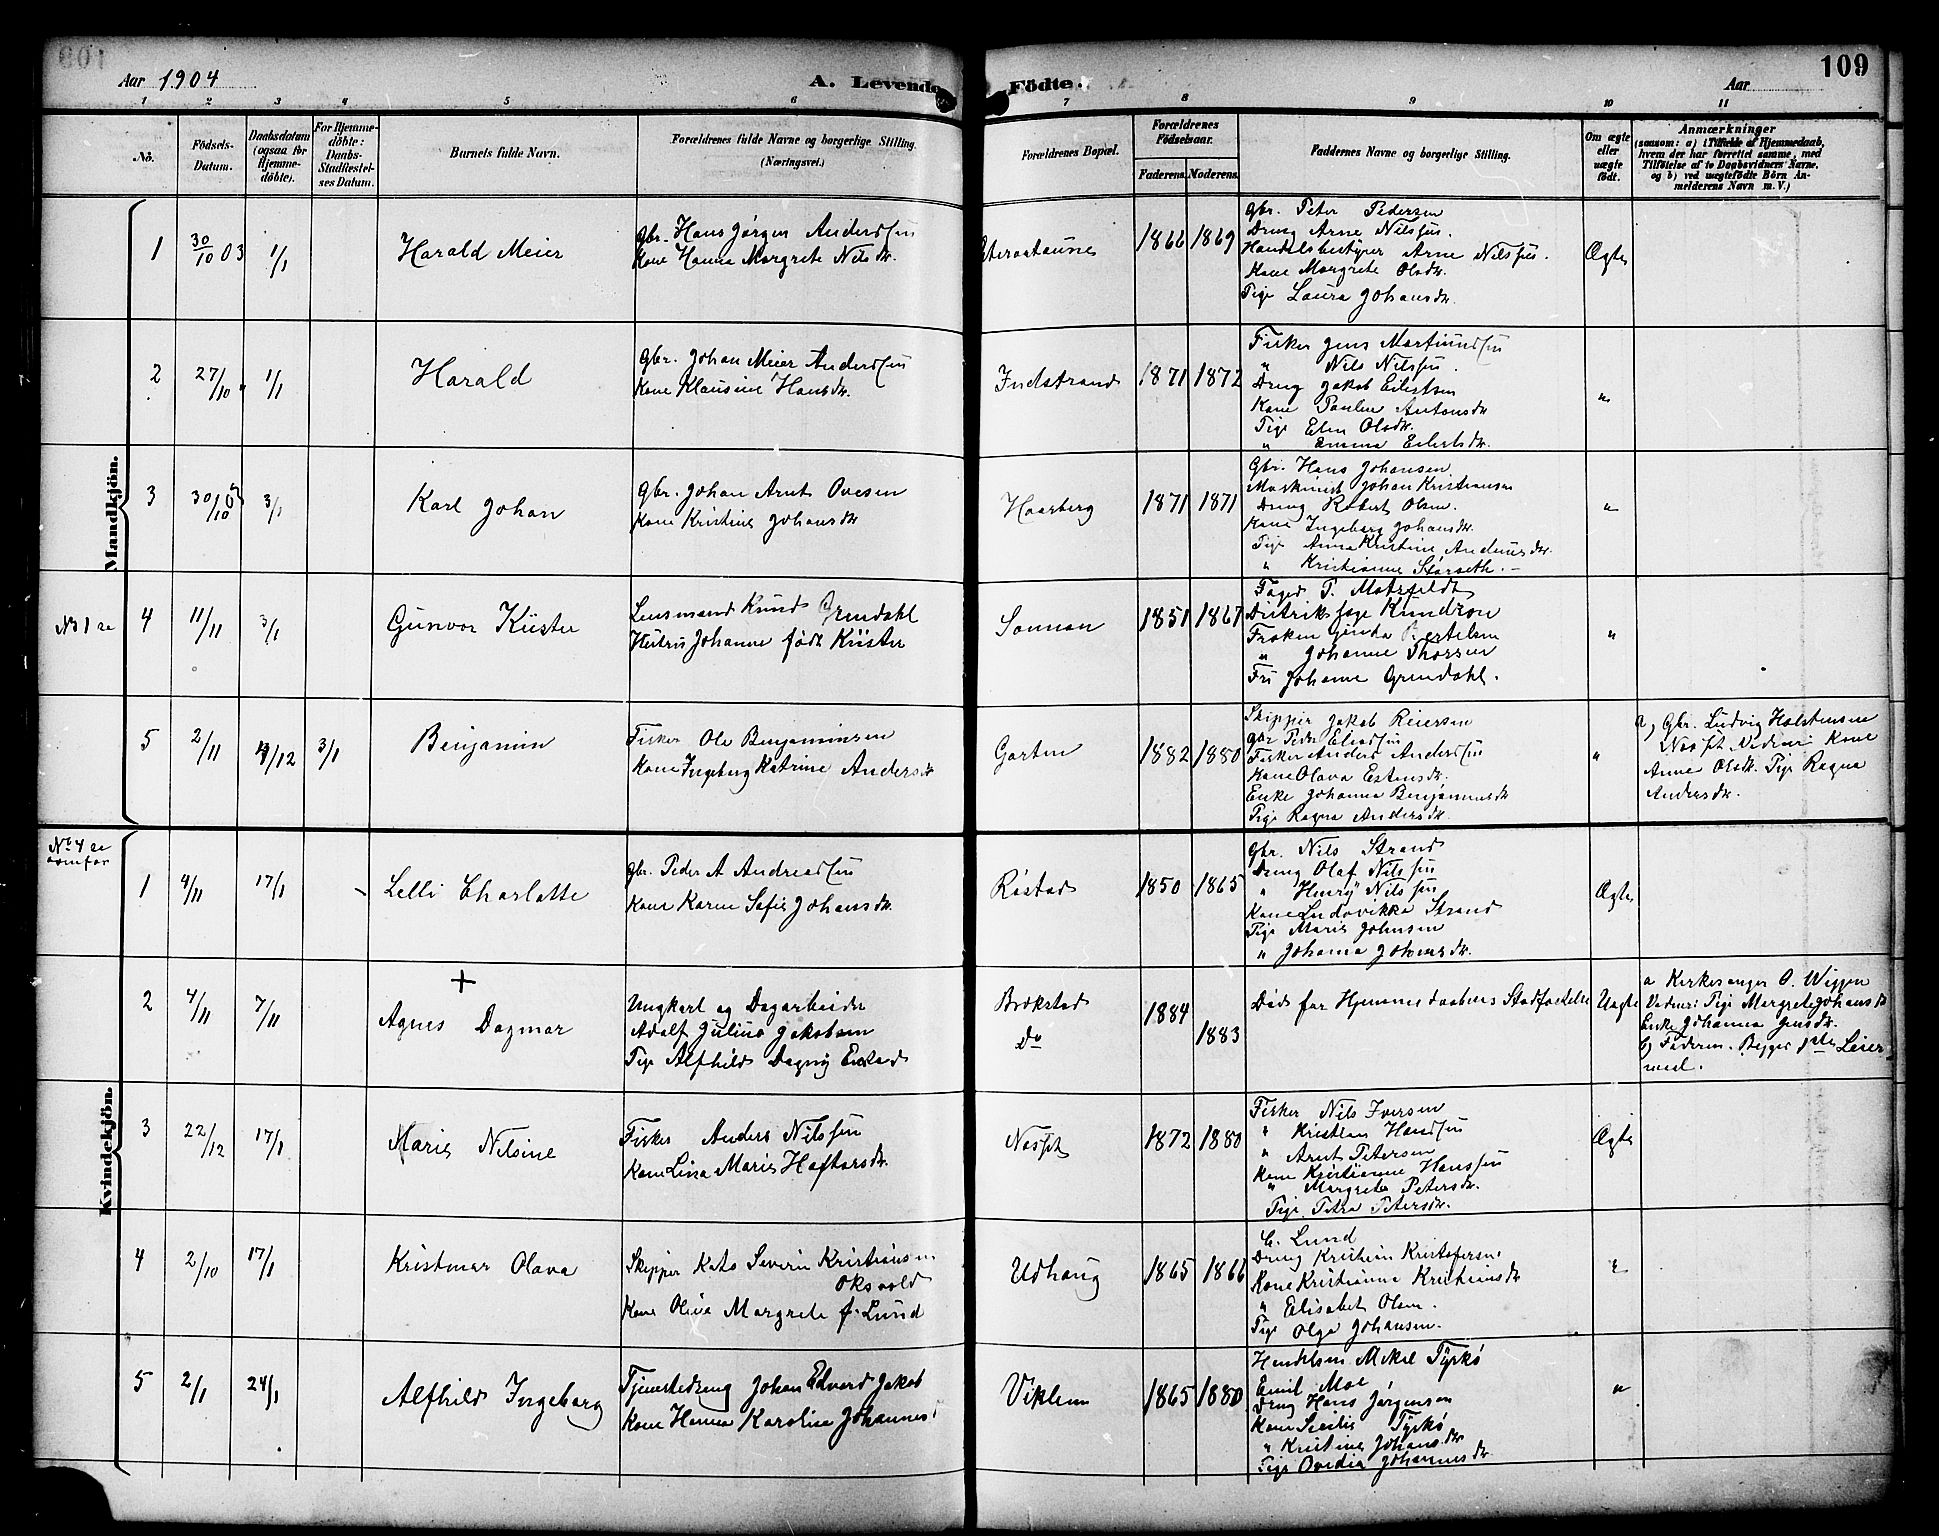 Aar 1904
A. Levende Födte.
Aar
109
1 2 3 4 5 6 7 8 9 10 11
No.
Fødsels-Datum.
Daabsdatum (ogsaa for Hjemme-døbte).
For Hjemme-døbte: Daabs-Stadfæstel-ses Datum.
Barnets fulde Navn.
Forældrenes fulde Navne og borgerlige Stilling. (Næringsvei.)
Forældrenes Bopæl.
Forældrenes Fødselsaar.
Faderens. Moderens.
Faddernes Navne og borgerlige Stilling.
Om ægte eller uægte født.
Anmærkninger
(saasom: a) i Tilfælde af Hjemmedaab, hvem der har forrettet samme, med Tilføielse af to Daabsvidners Navne, og b) ved uægtefødte Børn An-melderens Navn m. V.)
Mandkjön.
1 30/10 03 1/1 Harald Meier
Gbr. Hans Jørgen Anderssen
Kone Hanna Margrete Nilsdr.
1866 1869
Gbr. Peter Pedersen
Dreng Arne Nilssen.
Handelsbestyrer Arne Nilssen.
Kone Margrete Olsdr.
Pige Laura Johansdr.
Ægte
2 27/10 " 1/1 Harald
Gbr. Johan Meier Anderssen
Kone Klausine Hansdr.
Indstrand 1871 1872
Fisker Jens Martinussen
" Nils Nilssen.
Dreng Jakob Eilertsen
Kone Pauline Antonsdr
Pige Elen Olsdr.
" Emma Eilertsdr.
"
3 30/10 03 3/1 Karl Johan
Gbr. Johan Arnt Ovesen
Kone Kristine Johansdr
Haarberg 1871 1871
Gbr. Hans Johansen
Maskinist Johan Kristiansen
Dreng Robert Olsen.
Kone Ingeborg Johansdr.
Pige Anna Kristine Andersdr.
" Kristianne Størseth.
"
4 11/11 3/1 Gunvor Küster
Lensmand Knud Grendahl
Hustru Johanne født Küster
1851 1867
Foged P. Motzfeldt
Frøken Bertelsen
" Johanne Thorsen
Fru Johanne Grendahl.
"
5 2/11 4/12 3/1 Benjamin
Fisker Ole Benjaminsen
Kone Ingeborg Katrine Andersdr
Garten 1882 1880
Skipper Jakob Reiersen
Gbr Peder Eliassen
Fisker Anders Anderssen
Kone Olava Estensdr.
Enke Johanna Benjaminsdr
Pige Ragna Andersdr.
"
a) Gbr. Ludvig Holstensen
Kone
Anne Olsdr. Pige Ragna
Andersdr.
Kvindekjön.
1 4/11 17/1 Lelli Charlotte
Gbr. Peder A Andreassen
Kone Karen Sofie Johansdr.
Røstad 1850 1865
Gbr. Nils Strand
Dreng Olaf Nilssen
" Henry Nilssen
Kone Ludovikka Strand
Pige Marie Johnsen
" Johanna Johansdr.
Ægte
2 4/11 7/11 Agnes Dagmar
Ungkarl og Dagarbeider
Adolf Julius Jakobsen
Pige Alfhild Dagny
Brekstad
do
1884
1883
Død før Hjemmedaabens Stadfæstelse
Uægte
a Kirkesanger O. Wiggen
Vidner: Pige Margrete Johansdr
Enke Johanna Jensdr.
b) Faderen. Begges 1ste Leier-
maal.
3 22/12 17/1 Marie Nilsine
Fisker Anders Nilssen
Kone Lina Marie Haftorsdr.
1872 1880
Fisker Nils Iversen
" Kristian Hanssen
" Arnt Petersen
Kone Kristianne Hanssen
" Margrete Petersdr.
Pige Petra Petersdr.
Ægte
4 2/10 17/1 Kristmar Olava
Skipper Kato Severin Kristiansen
Oksvold
Kone Oliva Margrete f. Lund
Udhaug 1865 1866
C. Lund
Dreng Kristian Kristofersen
Kone Kristianna Kristiansdr
" Elisabet Olsen.
Pige Olga Johansen.
"
5 2/1 24/1 Alfhild Ingeborg
Tjenestedreng Johan Edvard Jakob
Kone Hanna Karolina Johannes
Viklem 1865 1880
Mikal Tyskø
Emil Moe
Dreng Hans Jørgensen
Kone Sicilie Tyskø
" Kristine Johansdr
Pige Ovedia Johannesdr
"